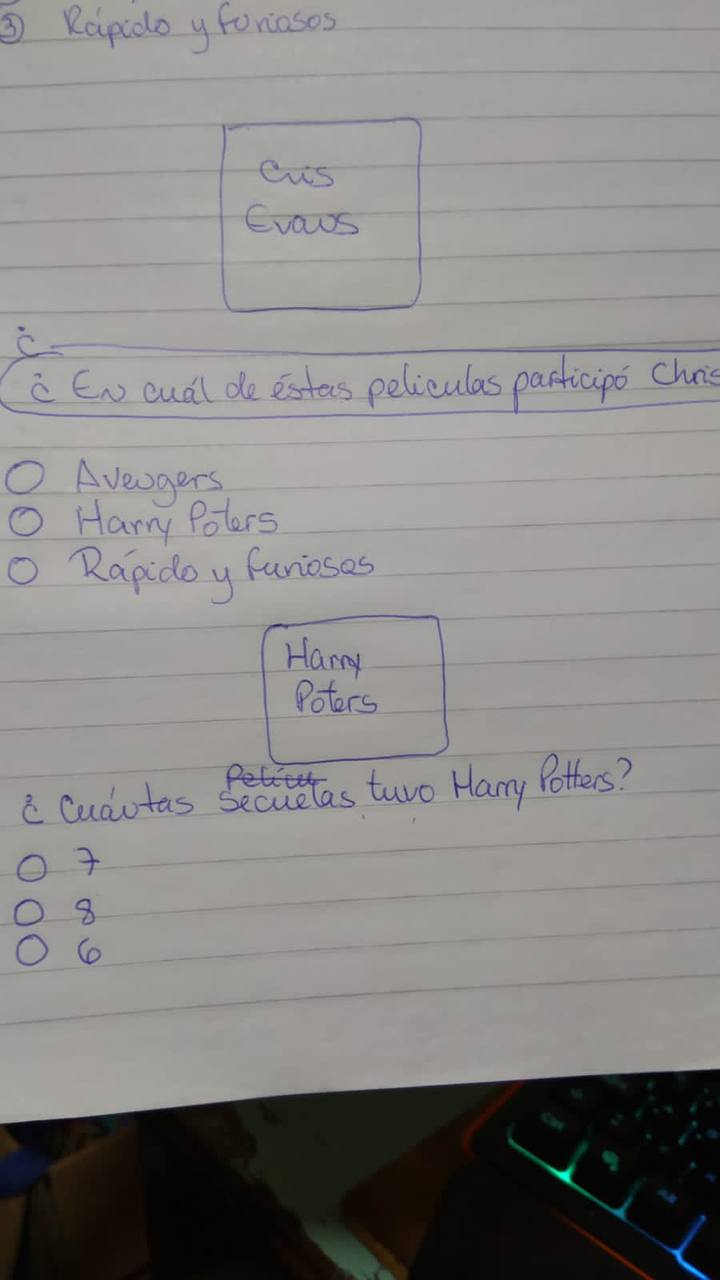 ③ Rápido y furiosos
Cris
Evans
¿
¿ En cuál de éstas peliculas participó Chris
Avengers
Harry Poters
Rápido y furiosos
Harry
Poters
Pelicu
¿ Cuántas Secuelas tuvo Harry Potters?
7
8
6